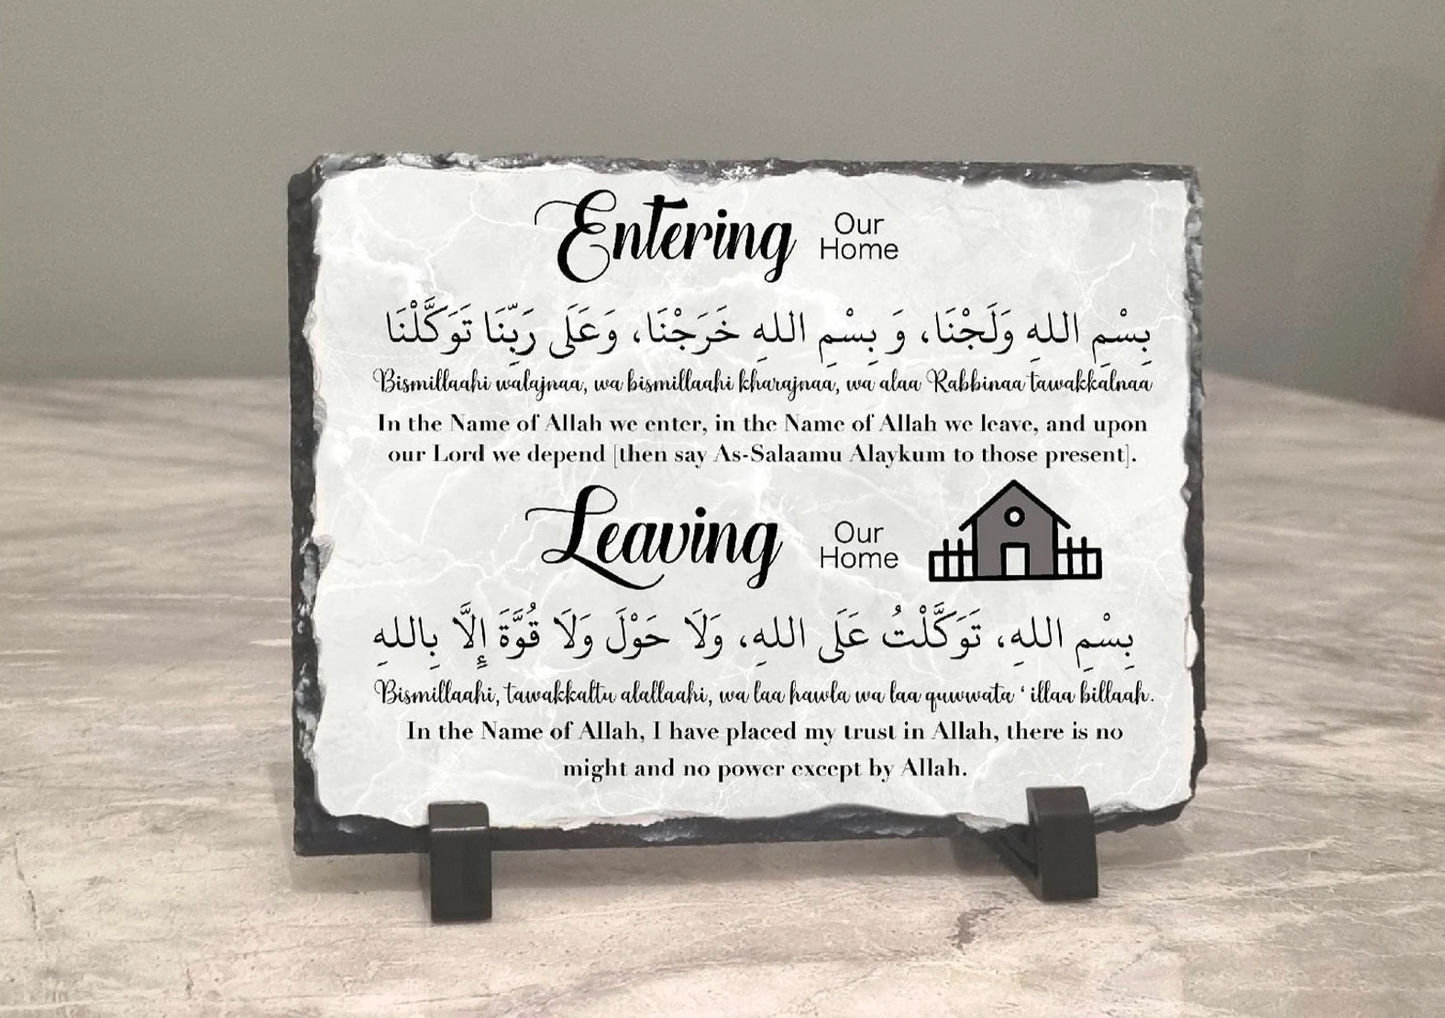 Entering Our Home
بِسْمِ اللهِ وَلَجْنَا، وَ بِسْمِ اللهِ خَرَجْنَا، وَعَلَى رَبِّنَا تَوَكَّلْنَا
Bismillaahi walajnaa, wa bismillaahi kharajnaa, wa alaa Rabbinaa tawakkalnaa
In the Name of Allah we enter, in the Name of Allah we leave, and upon
our Lord we depend [then say As-Salaamu Alaykum to those present].
Leaving Our Home
بِسْمِ اللهِ، تَوَكَّلْتُ عَلَى اللهِ، وَلَا حَوْلَ وَلَا قُوَّةَ إِلَّا بِاللهِ
Bismillaahi, tawakkaltu alallaahi, wa laa hawla wa laa quwwata ‘ illaa billaah.
In the Name of Allah, I have placed my trust in Allah, there is no
might and no power except by Allah.